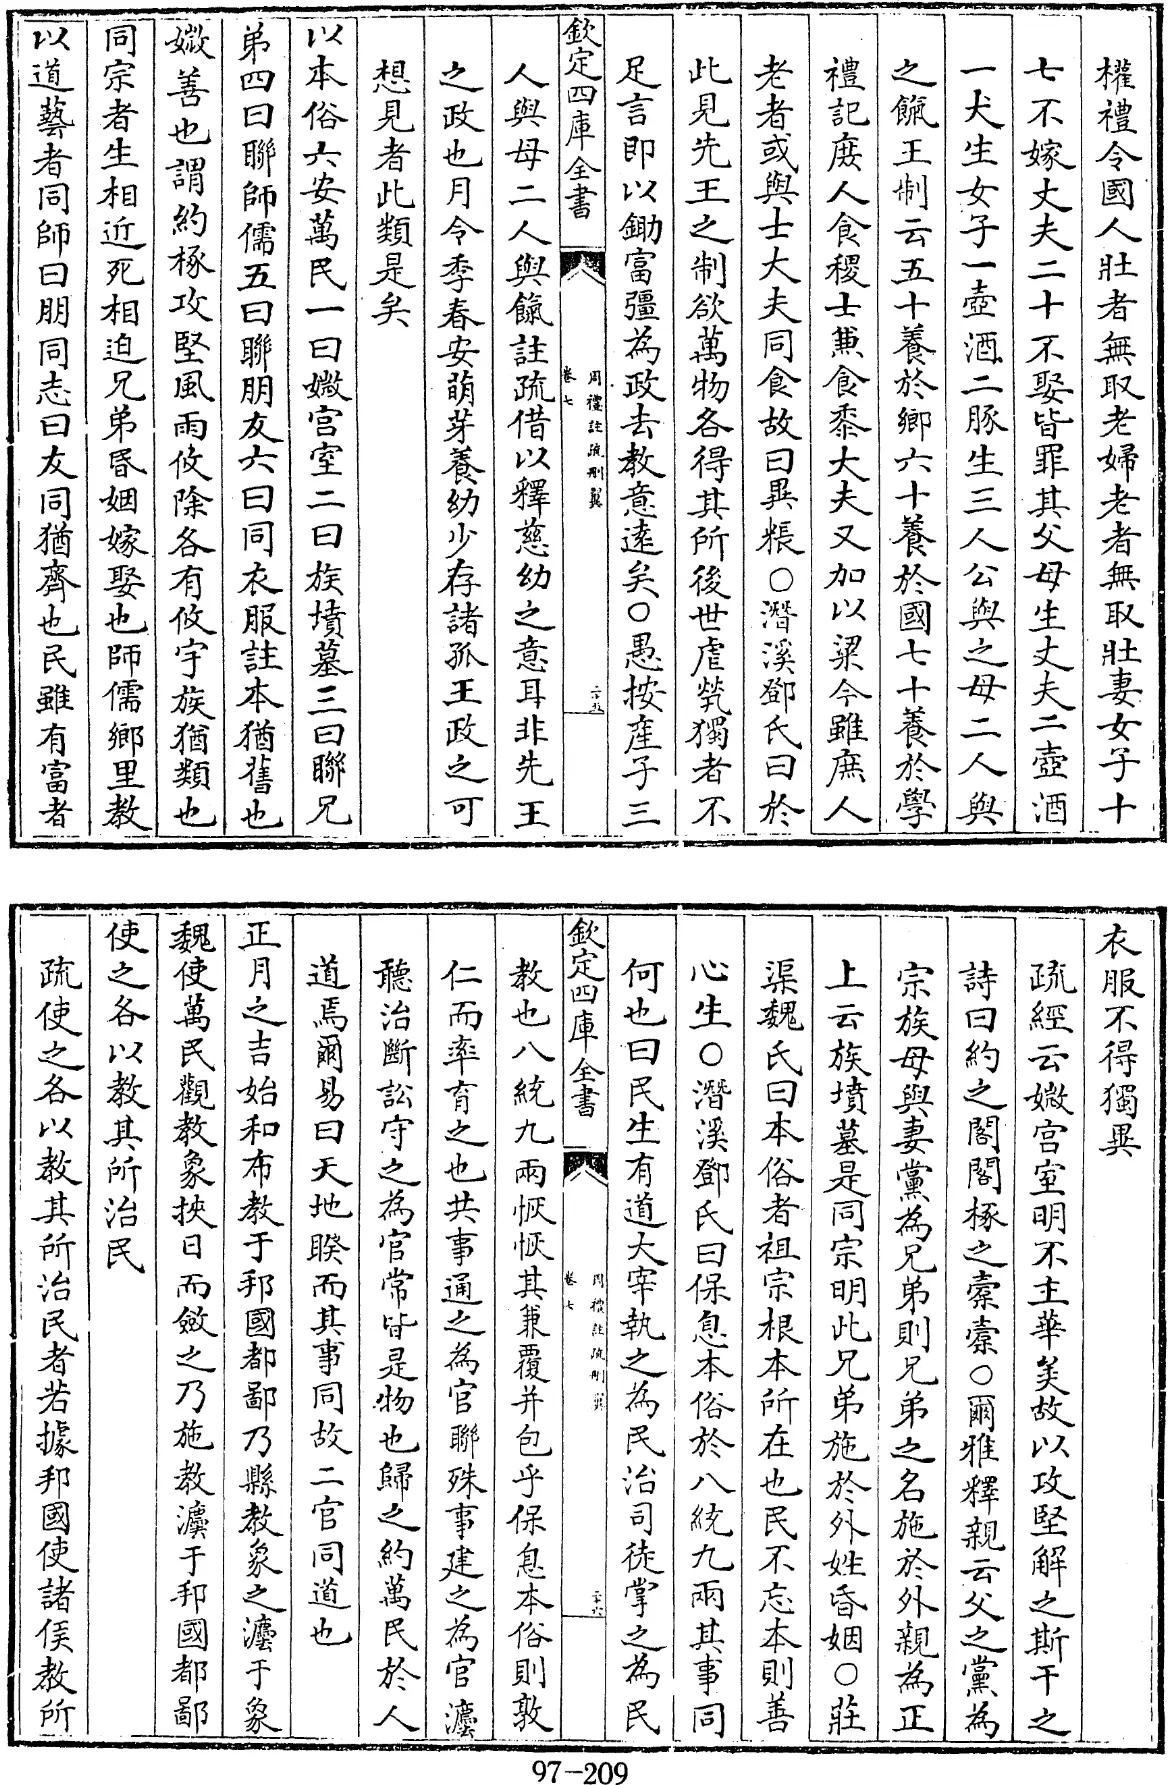 權禮令國人壯者無取老婦老者無取壯妻女子十
七不嫁丈夫二十不娶皆罪其父母生丈夫二壺酒
一犬生女子一壺酒二豚生三人公與之母二人與
之餼王制云五十養於鄉六十養於國七十養於學
禮記庻人食稷士兼食黍大夫又加以粱今雖庶人
老者或與士大夫同食故曰異粻○潛溪鄧氏曰於
此見先王之制欲萬物各得其所後世虐煢獨者不
足言即以鋤富彊為政去教意遠矣○愚按産子三
欽定四庫全書
周禮註疏刪翼
卷七
二十五
人與母二人與餼註疏借以釋慈幼之意耳非先王
之政也月令季春安萌芽養幼少存諸孤王政之可
想見者此類是矣
以本俗六安萬民一曰媺宫室二曰族墳墓三曰聯兄
弟四曰聯師儒五曰聯朋友六曰同衣服註本猶舊也
媺善也謂約椓攻堅風雨攸除各有攸宇族猶類也
同宗者生相近死相迫兄弟昏姻嫁娶也師儒鄉里教
以道藝者同師曰朋同志曰友同猶齊也民雖有富者
衣服不得獨異
疏經云媺宫室明不主華美故以攻堅解之斯干之
詩曰約之閣閣椓之橐橐○爾雅釋親云父之黨為
宗族母與妻黨為兄弟則兄弟之名施於外親為正
上云族墳墓是同宗明此兄弟施於外姓昏姻○莊
渠魏氏曰本俗者祖宗根本所在也民不忘本則善
心生○潛溪鄧氏曰保息本俗於八統九兩其事同
何也曰民生有道大宰執之為民治司徒掌之為民
欽定四庫全書
周禮註疏刪翼
卷七
二十六
教也八統九兩恢恢其兼覆并包乎保息本俗則敦
仁而率育之也共事通之為官聯殊事建之為官灋
聽治斷訟守之為官常皆是物也歸之約萬民於人
道焉爾易曰天地睽而其事同故二官同道也
正月之吉始和布教于邦國都鄙乃縣教象之灋于象
魏使萬民觀教象挾日而斂之乃施教灋于邦國都鄙
使之各以教其所治民
疏使之各以教其所治民者若據邦國使諸侯教所
97-209